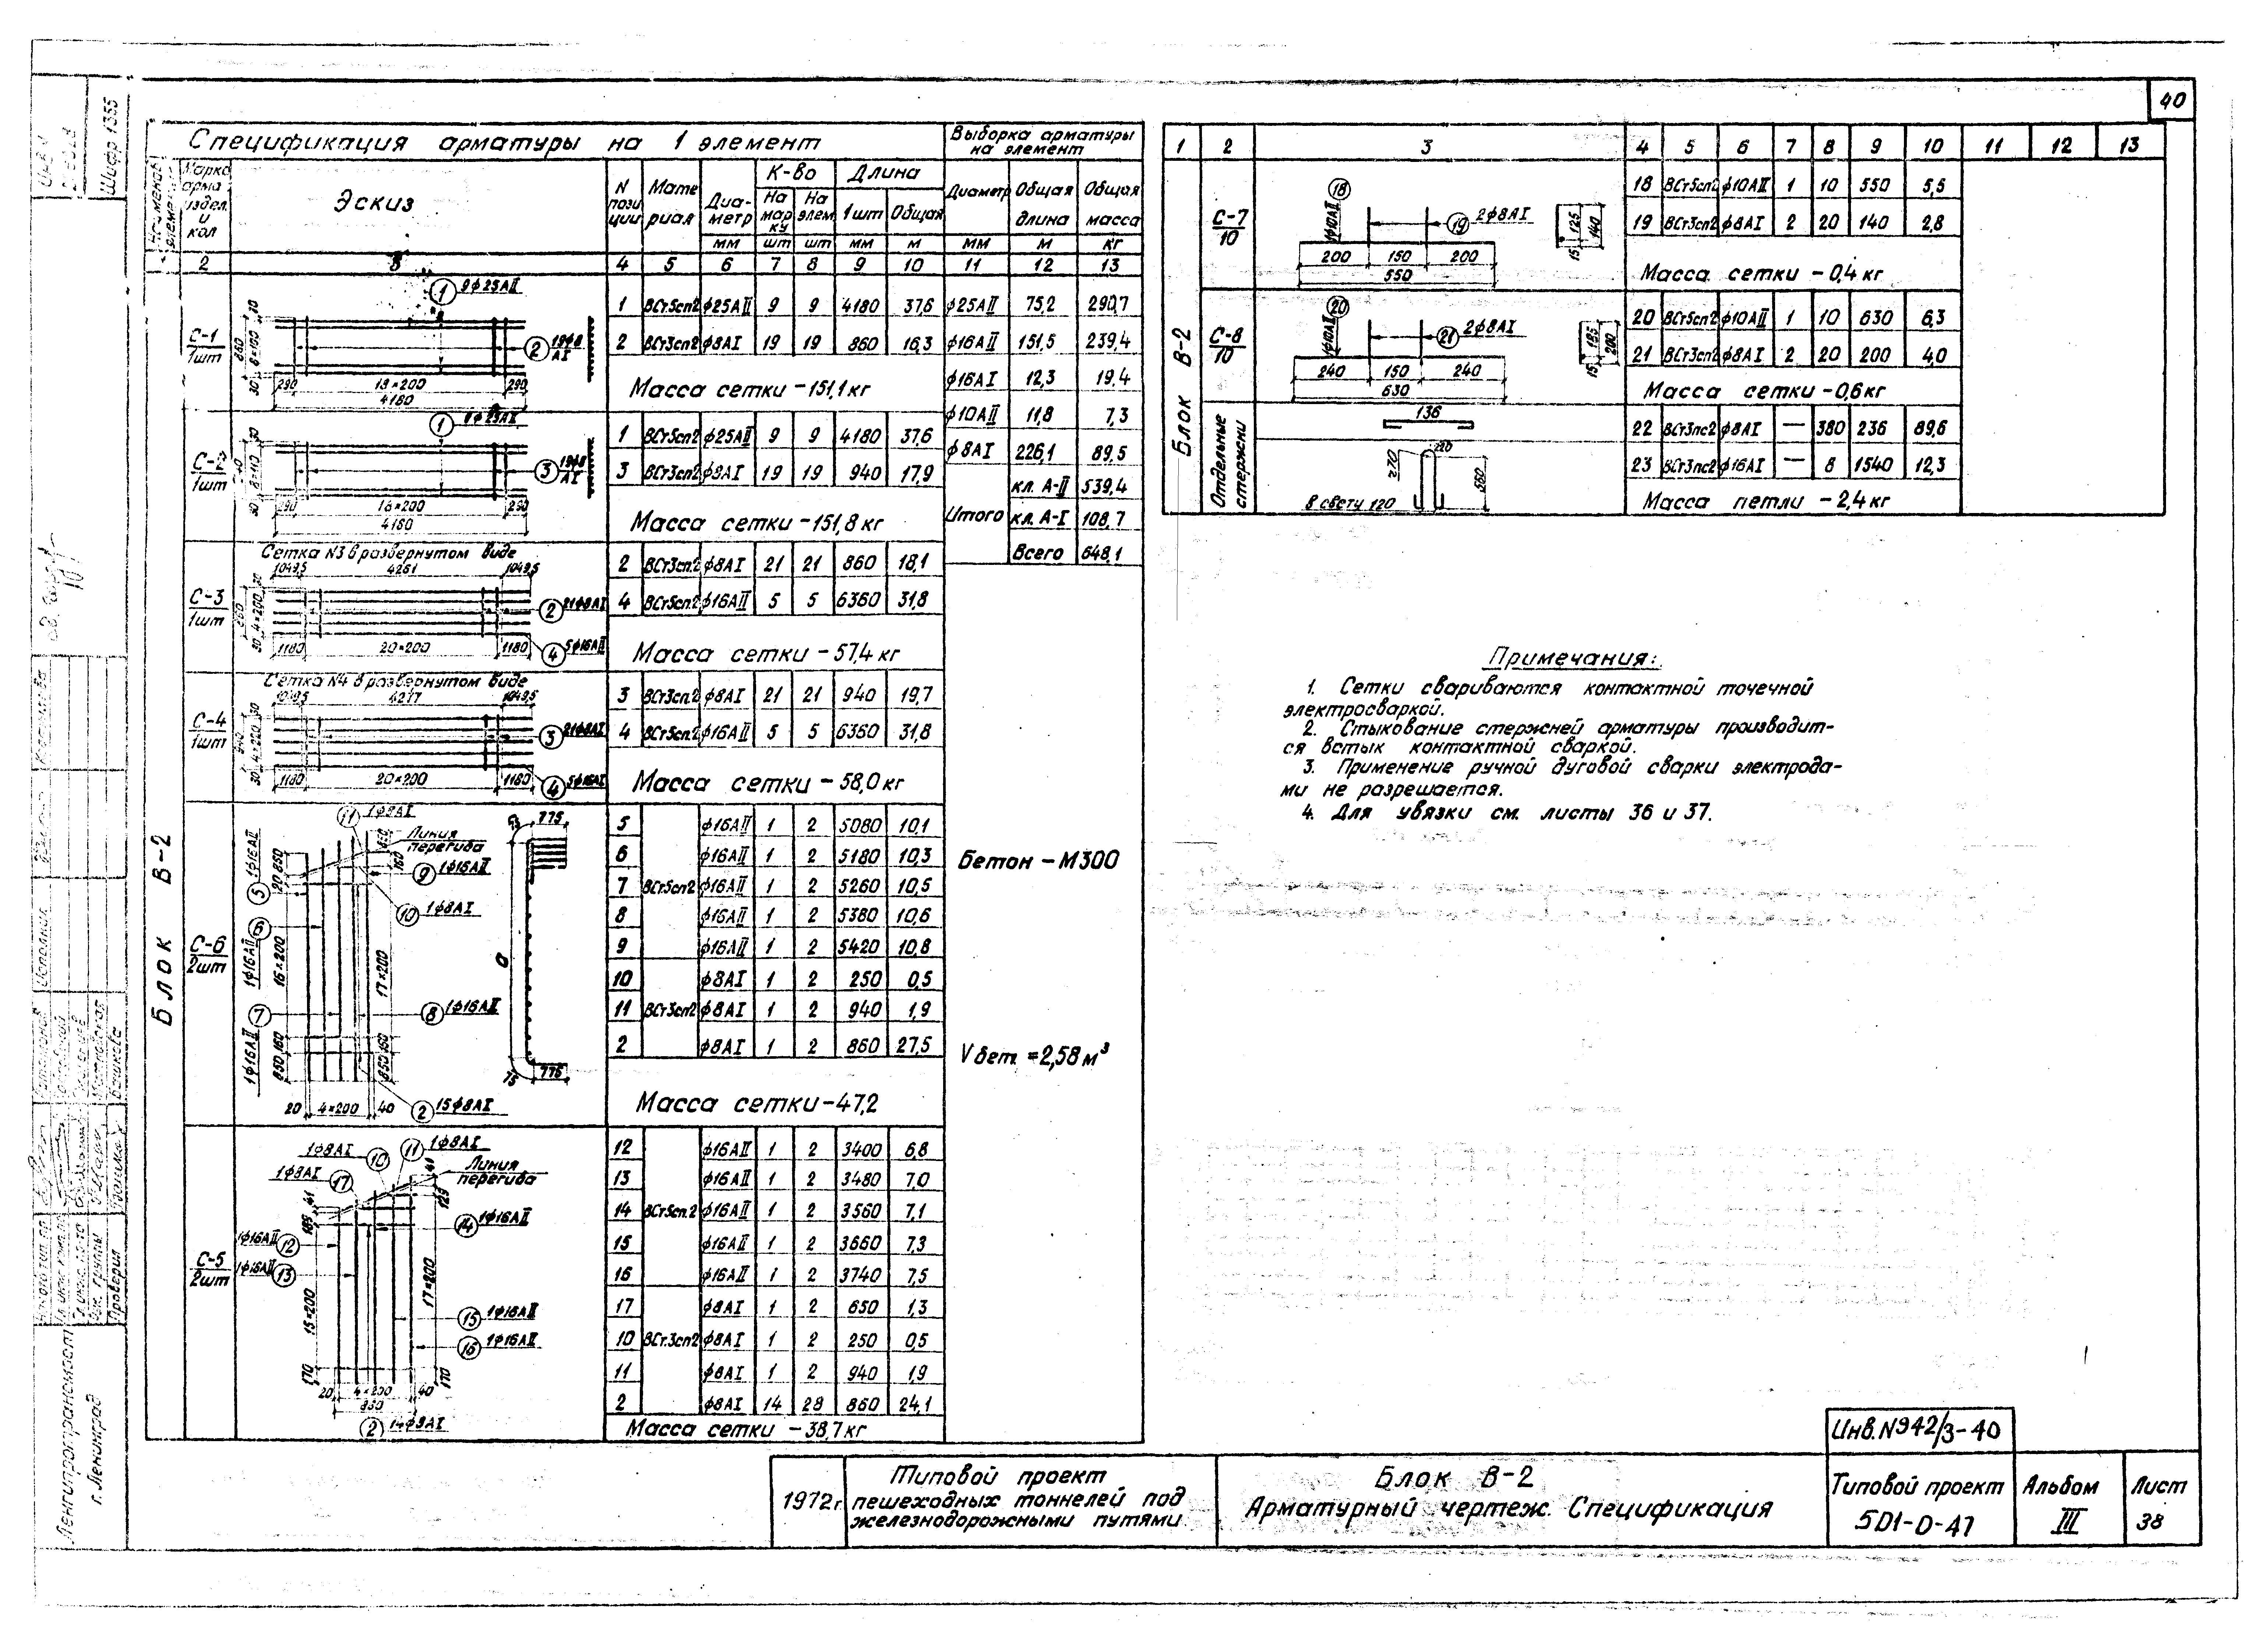 40
Шифр 1355
Спецификация арматуры на 1 элемент
Выборка арматуры на элемент
Эскиз
N позиции
Материал
Диаметр
К-во
На марку
На элем.
Длина
1шт
Общая
Диаметр
Общая длина
Общая масса
мм шт шт мм м мм м кг
2 3 4 5 6 7 8 9 10 11 12 13
Блок В-2
С-1
1шт
1 9ф25АII
2 19ф8АI
30 6×100 30 860
290 18×200 290
4180
1 ВСт5сп2 ф25АII 9 9 4180 37,6
2 ВСт3сп2 ф8АI 19 19 860 16,3
Масса сетки – 151,1 кг
С-2
1шт
290 18×200 290
4180
1 ВСт5сп2 ф25АII 9 9 4180 37,6
3 ВСт3сп2 ф8АI 19 19 940 17,9
Масса сетки – 151,8 кг
С-3
1шт
Сетка N3 в развернутом виде
1049,5 4261 1049,5
2 21ф8АI
1180 20×200 1180
4 5ф16АII
2 ВСт3сп2 ф8АI 21 21 860 18,1
4 ВСт5сп2 ф16АII 5 5 6360 31,8
Масса сетки – 57,4 кг
С-4
1шт
Сетка N4 в развернутом виде
1049,5 4277 1049,5
3 21ф8АI
1180 20×200 1180
4
3 ВСт3сп2 ф8АI 21 21 940 19,7
4 ВСт5сп2 ф16АII 5 5 6360 31,8
Масса сетки – 58,0 кг
С-6
2шт
11 1ф8АI
Линия перегиба
9 1ф16АII
10 1ф8АI
5 1ф16АII
6 1ф16АII
7 1ф16АII
8 1ф16АII
16×200
17×200
775
75 775
20 4×200 40
2 15ф8АI
5 ф16АII 1 2 5080 10,1
6 ф16АII 1 2 5180 10,3
7 ВСт5сп2 ф16АII 1 2 5260 10,5
8 ф16АII 1 2 5380 10,6
9 ф16АII 1 2 5420 10,8
10 ф8АI 1 2 250 0,5
11 ВСт3сп2 ф8АI 1 2 940 1,9
2 ф8АI 1 2 860 27,5
Масса сетки – 47,2
С-5
2шт
1ф8АI 10
11 1ф8АI
1ф8АI 17
Линия перегиба
14 1ф16АII
1ф16АII 12
1ф16АII 13
15 1ф16АII
16 1ф16АII
15×200
17×200
170 170
20 4×200 40
2 14ф8АI
12 ф16АII 1 2 3400 6,8
13 ф16АII 1 2 3480 7,0
14 ВСт5сп.2 ф16АII 1 2 3560 7,1
15 ф16АII 1 2 3660 7,3
16 ф16АII 1 2 3740 7,5
17 ф8АI 1 2 650 1,3
10 ВСт.3сп2 ф8АI 1 2 250 0,5
11 ф8АI 1 2 940 1,9
2 ф8АI 14 28 860 24,1
Масса сетки – 38,7 кг
ф25АII 75,2 290,7
ф16АII 151,5 239,4
ф16АI 12,3 19,4
ф10АII 11,8 7,3
ф8АI 226,1 89,5
Итого
кл. А-II 539,4
кл. А-I 108,7
Всего 648,1
Бетон – М300
V бет. = 2,58 м³
1 2 3 4 5 6 7 8 9 10 11 12 13
Блок В-2
С-7
10
18 1ф10АII
19 2ф8АI
200 150 200
550
15 125 140
18 ВСт5сп2 ф10АII 1 10 550 5,5
19 ВСт3сп2 ф8АI 2 20 140 2,8
Масса сетки – 0,4 кг
С-8
10
20 1ф10АII
21 2ф8АI
240 150 240
630
15 185 200
20 ВСт5сп2 ф10АII 1 10 630 6,3
21 ВСт3сп2 ф8АI 2 20 200 4,0
Масса сетки – 0,6 кг
Отдельные стержни
136
270
560
В свету 120
22 ВСт3пс2 ф8АI — 380 236 89,6
23 ВСт3пс2 ф16АI — 8 1540 12,3
Масса петли – 2,4 кг
Примечания:
1. Сетки свариваются контактной точечной
электросваркой.
2. Стыкование стержней арматуры производит-
ся встык контактной сваркой.
3. Применение ручной дуговой сварки электрода-
ми не разрешается.
4. Для увязки см. листы 36 и 37.
Инв.N942/3-40
1972г.
Типовой проект
пешеходных тоннелей под
железнодорожными путями.
Блок В-2
Арматурный чертеж. Спецификация
Типовой проект
501-0-47
Альбом
III
Лист
38
Проверил
Ленгипротрансмост
г. Ленинград